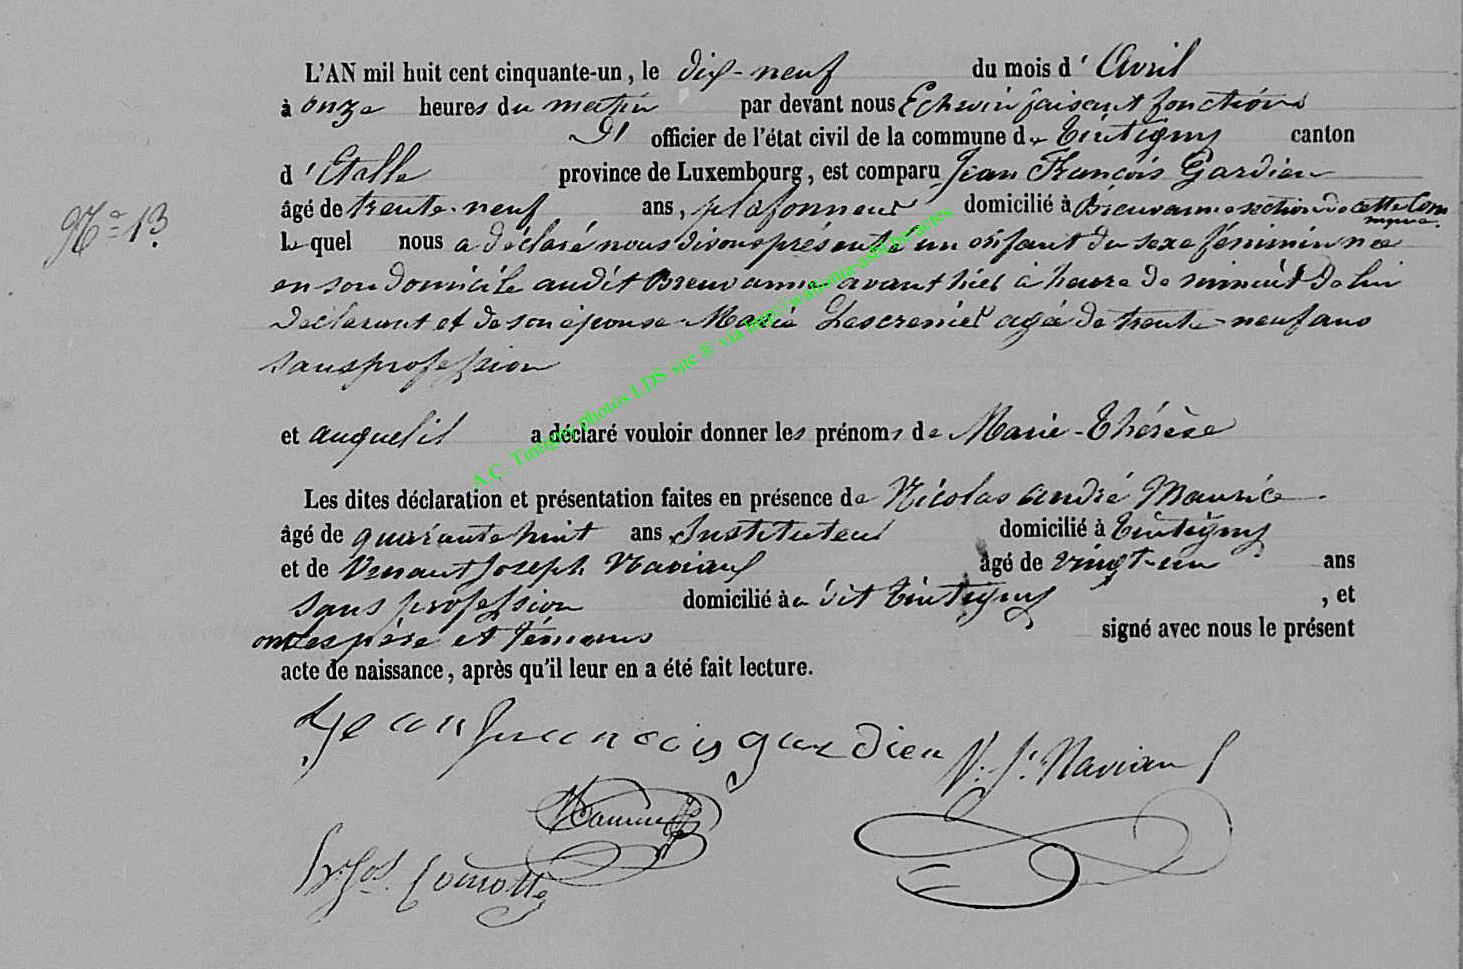 L'AN mil huit cent cinquante-un, le dix-neuf du mois d' Avril
à onze heures du matin par devant nous Echevin faisant fonctions
d' officier de l'état civil de la commune de Tintigny canton
d'Etalle province de Luxembourg, est comparu Jean François Gardien
N° 13.
âgé de trente-neuf ans, plafonneur domicilié à Breuvanne section de cette Com
mune.
Lequel nous a déclaré nous présenté un enfant du sexe féminin née
en son domicile audit Breuvanne avant hier à heure de minuit de lui
déclarant et de son épouse Marie Lescrenier agée de trente-neuf ans
sans profession
et auquel il a déclaré vouloir donner les prénoms de Marie-Thérèse
A.C. Tintigny photos LDS site ® via http://wallonia-asbl.be/actes
Les dites déclaration et présentation faites en présence de Nicolas André Maurice
âgé de quarante huit ans Instituteur domicilié à Tintigny
et de Venant Joseph Naviaux âgé de vingt-un ans
sans profession domicilié à dit Tintigny, et
ont les père et témoins signé avec nous le présent
acte de naissance, après qu'il leur en a été fait lecture.
Jean françois gardien
V. J. Naviaux
Maurice